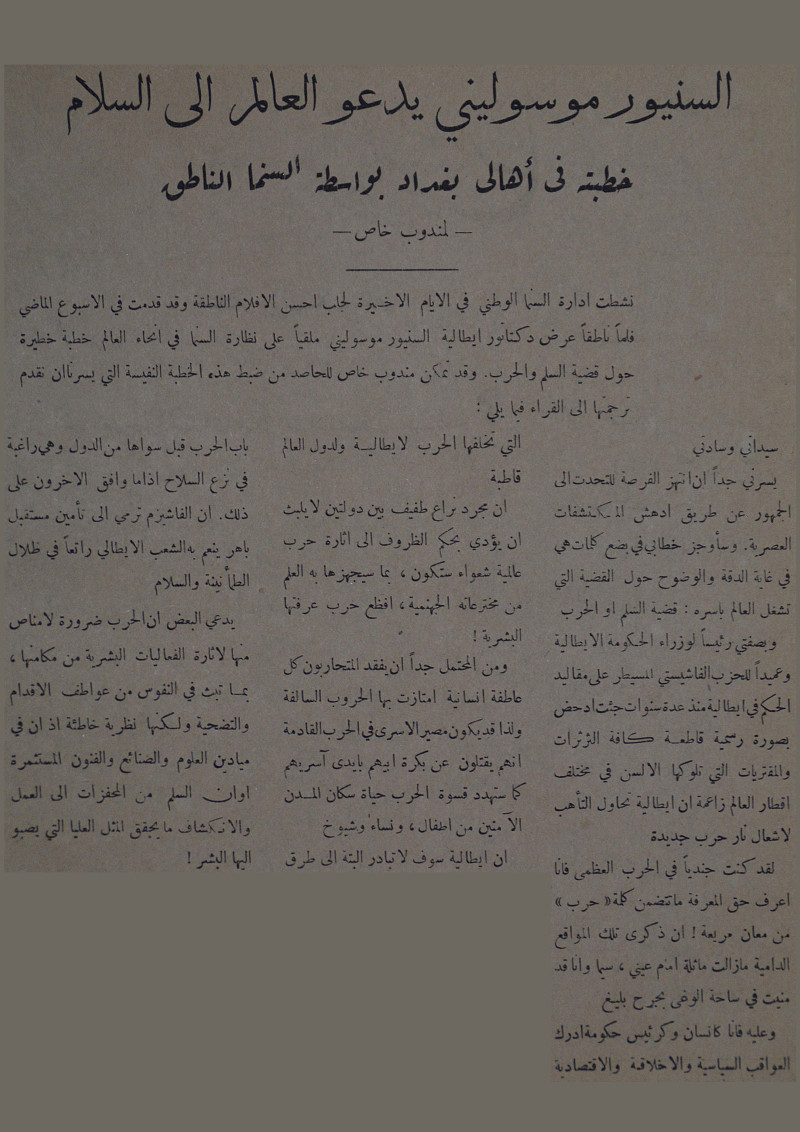 السنيور موسوليني يدعو العالم الى السلام
خطبته فى أهالى بغداد بواسطة السنما الناطق
— لمندوب خاص —
نشطت ادارة السنما الوطني في الايام الاخيرة لجلب احسن الافلام الناطقة وقد قدمت في الاسبوع الماضي
فلماً ناطقاً عرض دكتاتور ايطالية السنيور موسوليني ملقياً على نظارة السنما في انحاء العالم خطبة خطيرة
حول قضية السلم والحرب. وقد تمكن مندوب خاص للحاصد من ضبط هذه الخطبة النفيسة التي يسرنا ان نقدم
ترجمتها الى القراء فيما يلي :
سيداتي وسادتي
يسرني جداً ان انتهز الفرصة للتحدث الى
الجمهور عن طريق ادهش المكتشفات
العصرية. وسأوجز خطابي في بضع كلمات هي
في غاية الدقة والوضوح حول القضية التي
تشغل العالم باسره : قضية السلم او الحرب
وبصفتي رئيساً لوزراء الحكومة الايطالية
وعميداً للحزب الفاشيستي المسيطر على مقاليد
الحكم في ايطالية منذ عدة سنوات جئت ادحض
بصورة رسمية قاطعة كافة الثرثرات
والمفتريات التي تلوكها الالسن في مختلف
اقطار العالم زاعمة ان ايطالية تحاول التأهب
لاشعال نار حرب جديدة
لقد كنت جندياً في الحرب العظمى فانا
اعرف حق المعرفة ماتتضمن كلمة « حرب »
من معان مريعة ! ان ذكرى تلك المواقع
الدامية مازالت ماثلة امام عيني ، سيما وانا قد
منيت في ساحة الوغى بجرح بليغ
وعليه فانا كانسان وكرئيس حكومة ادرك
العواقب السياسية والاخلاقية والاقتصادية
التي تخلفها الحرب لايطالية ولدول العالم
قاطبة
ان مجرد نزاع طفيف بين دولتين لايلبث
ان يؤدي بحكم الظروف الى اثارة حرب
عالمية شعواء ستكون ، بما سيجهزها به العلم
من مخترعاته الجهنمية ، افظع حرب عرفتها
البشرية !
ومن المحتمل جداً ان يفقد المتحاربون كل
عاطفة انسانية امتازت بها الحروب السالفة
ولذا قد يكون مصير الاسرى في الحرب القادمة
انهم يقتلون عن بكرة ابيهم بايدى آسريهم
كما ستهدد قسوة الحرب حياة سكان المدن
الآمنين من اطفال ، ونساء وشيوخ
ان ايطالية سوف لاتبادر البتة الى طرق
باب الحرب قبل سواها من الدول وهي راغبة
في نزع السلاح اذا ما وافق الاخرون على
ذلك. ان الفاشيزم ترمي الى تأمين مستقبل
باهر ينعم به الشعب الايطالي راتعاً في ظلال
الطمأنينة والسلام
يدعي البعض ان الحرب ضرورة لامناص
منها لاثارة الفعاليات البشرية من مكامنها ،
بما تبث في النفوس من عواطف الاقدام
والتضحية ولكنها نظرية خاطئة اذ ان في
ميادين العلوم والصنائع والفنون المستثمرة
اوان السلم من المحفزات الى العمل
والانكشاف ما يحقق المثل العليا التي يصبو
اليها البشر !